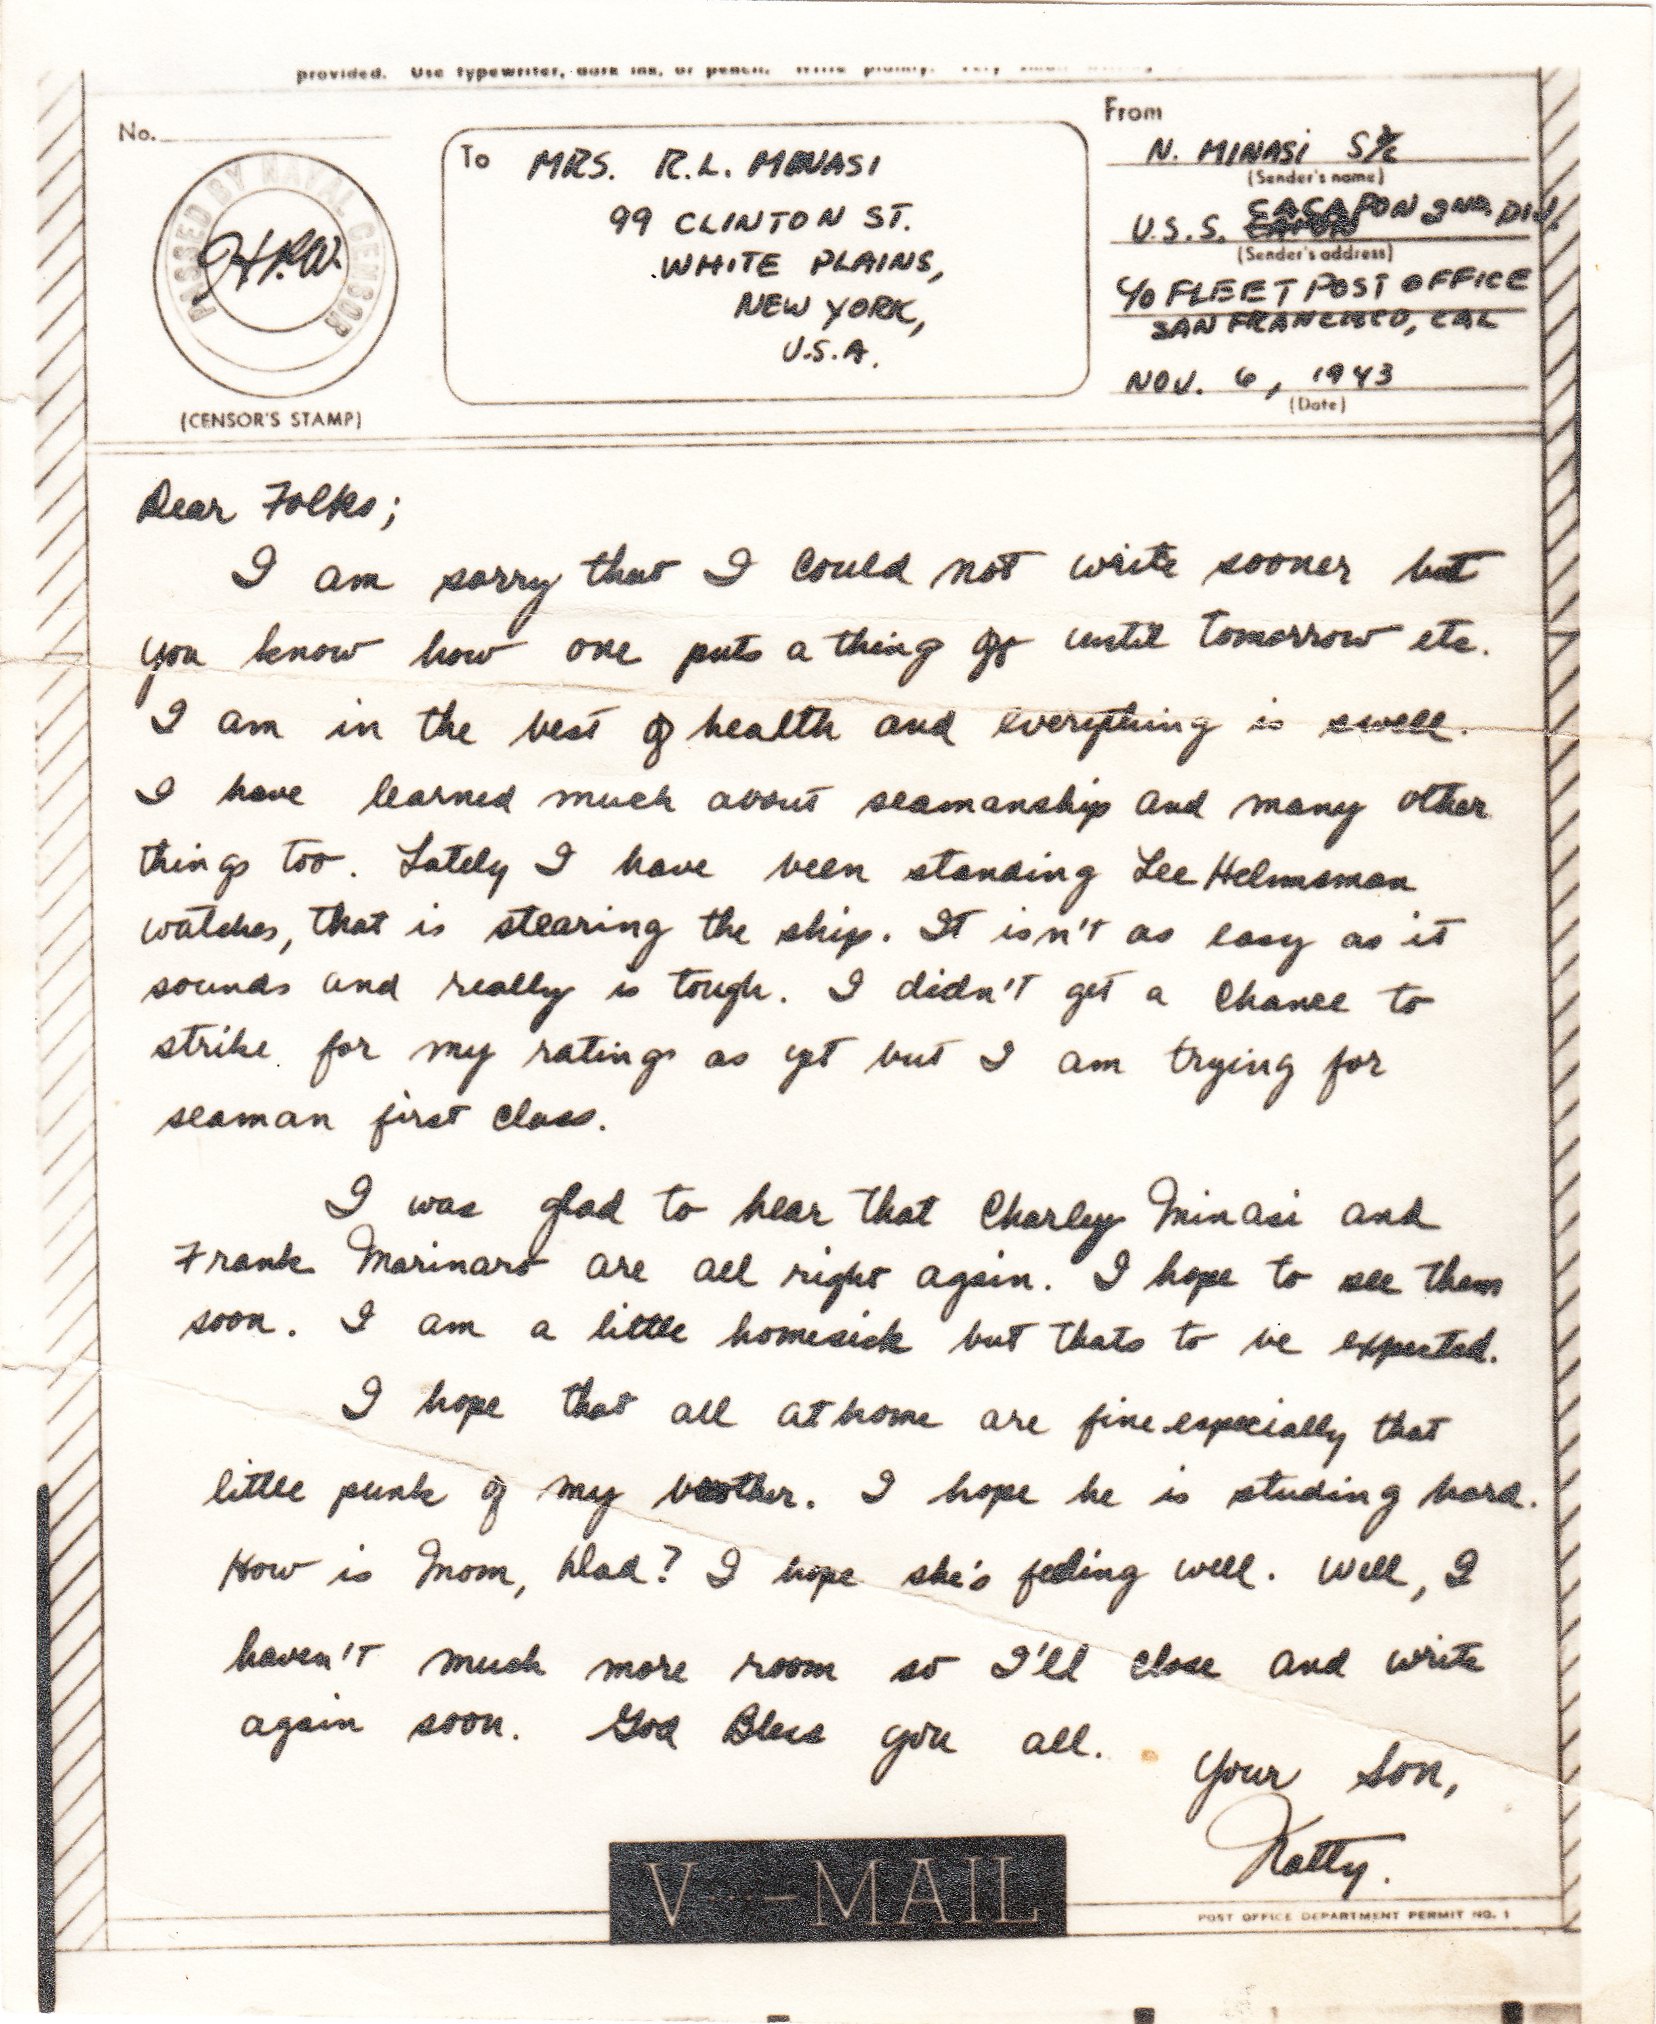 provided. Use typewriter, dark ink, or pencil. Write plainly. Very small
No.
PASSED BY NAVAL CENSOR
H.R.W.
(CENSOR'S STAMP)
To MRS. R.L. MINASI
99 CLINTON ST.
WHITE PLAINS,
NEW YORK,
U.S.A.
From
N. MINASI S 2/c
(Sender's name)
U.S.S. CACAPON 2ND. DIV.
(Sender's address)
c/o FLEET POST OFFICE
SAN FRANCISCO, CAL
NOV. 6, 1943
(Date)
Dear Folks;
I am sorry that I could not write sooner but
you know how one puts a thing off until tomorrow etc.
I am in the best of health and everything is swell.
I have learned much about seamanship and many other
things too. Lately I have been standing Lee Helmsman
watches, that is stearing the ship. It isn't as easy as it
sounds and really is tough. I didn't get a chance to
strike for my rating as yet but I am trying for
seaman first class.
I was glad to hear that Charley Minasi and
Frank Marinaro are all right again. I hope to see them
soon. I am a little homesick but thats to be expected.
I hope that all at home are fine especially that
little punk of my brother. I hope he is studing hard.
How is Mom, Dad? I hope she's feeling well. Well, I
haven't much more room so I'll close and write
again soon. God Bless you all.
Your Son,
Natty.
V - MAIL
POST OFFICE DEPARTMENT PERMIT NO. 1